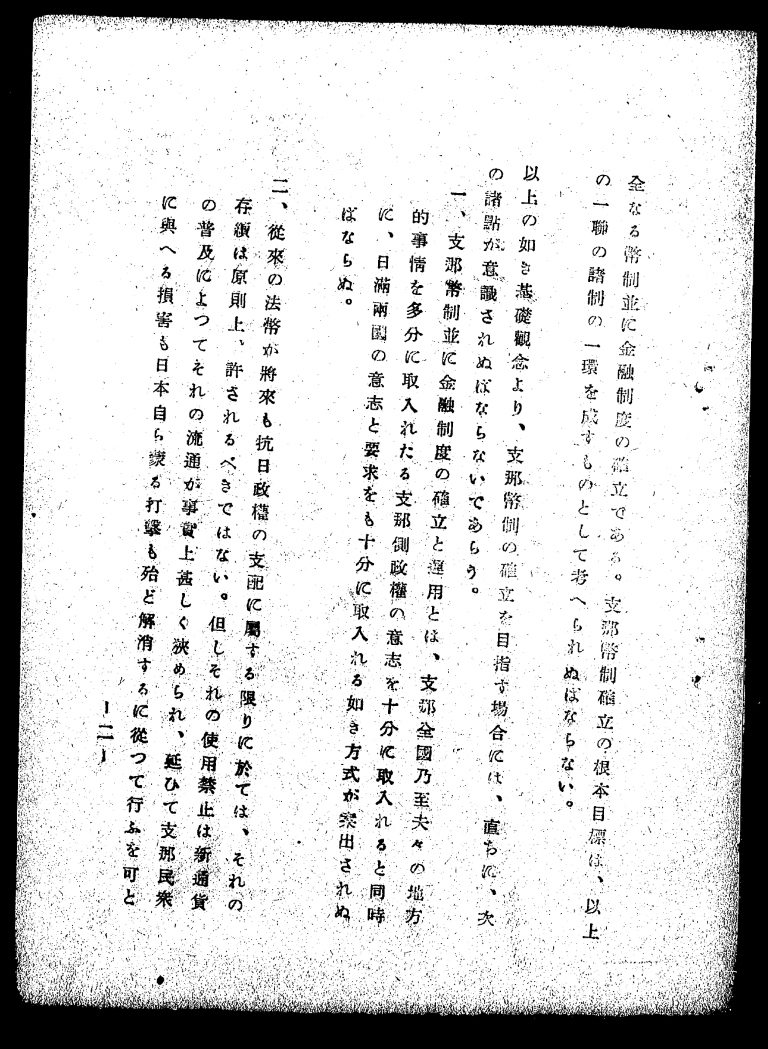 全なる幣制並に金融制度の確立である。支那幣制確立の根本目標は、以上
の一聯の諸制の一環を成すものとして考へられぬばならない。
以上の如き基礎觀念より、支那幣制の確立を目指す場合には、直ちに、次
の諸點が意識されぬばならないであらう。
一、支那幣制並に金融制度の確立と運用とは、支那全國乃至夫々の地方
的事情を多分に取入れたる支那側政權の意志を十分に取入れると同時
に、日滿兩國の意志と要求をも十分に取入れる如き方式が案出されぬ
ばならぬ。
二、從來の法幣が將來も抗日政權の支配に屬する限りに於ては、それの
存續は原則上、許されるべきではない。但しそれの使用禁止は新通貨
の普及によつてそれの流通が事實上甚しく狹められ、延ひて支那民衆
に與へる損害も日本自ら蒙る打擊も殆ど解消するに從つて行ふを可と
ー二ー